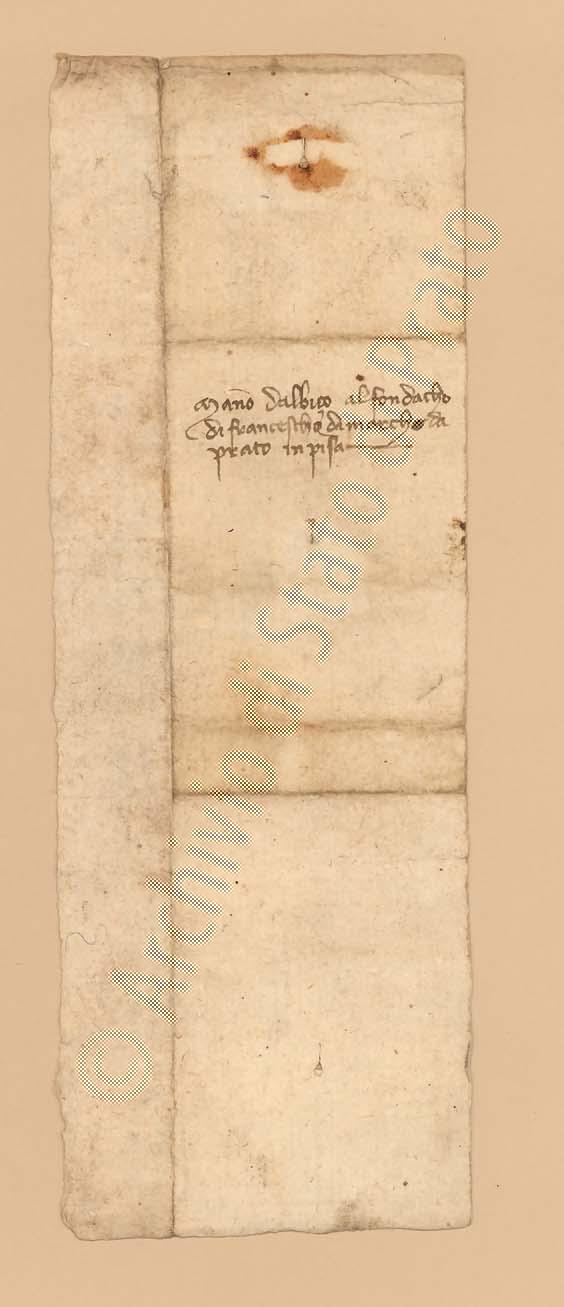 Mano dalbizo al fondacho
di francescho di marcho da
prato in pisa
© Archivio di Stato di Prato